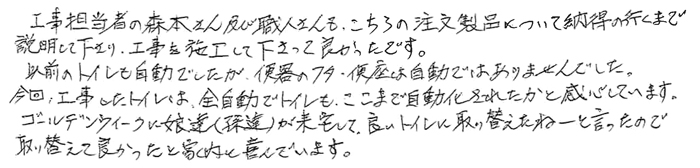 工事担当者の森本さん及び職人さんも、こちらの注文製品について納得の行くまで
説明して下さり、工事を施工して下さって良かったです。
以前のトイレも自動でしたが、便器のフタ・便座は自動ではありませんでした。
今回、工事したトイレは、全自動でトイレも、ここまで自動化されたかと感心しています。
ゴールデンウィークに娘達(孫達)が来宅して、良いトイレに取り替えたねーと言ったので
取り替えて良かったと家内と喜んでいます。